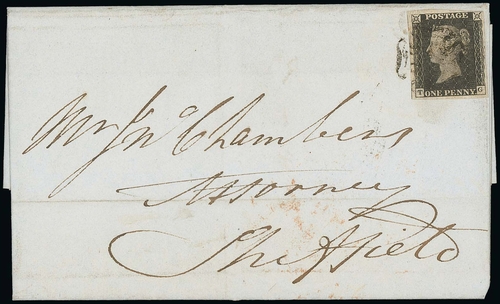 POSTAGE
T G
ONE PENNY
Mr Jno Chambers
Attorney
Sheffield